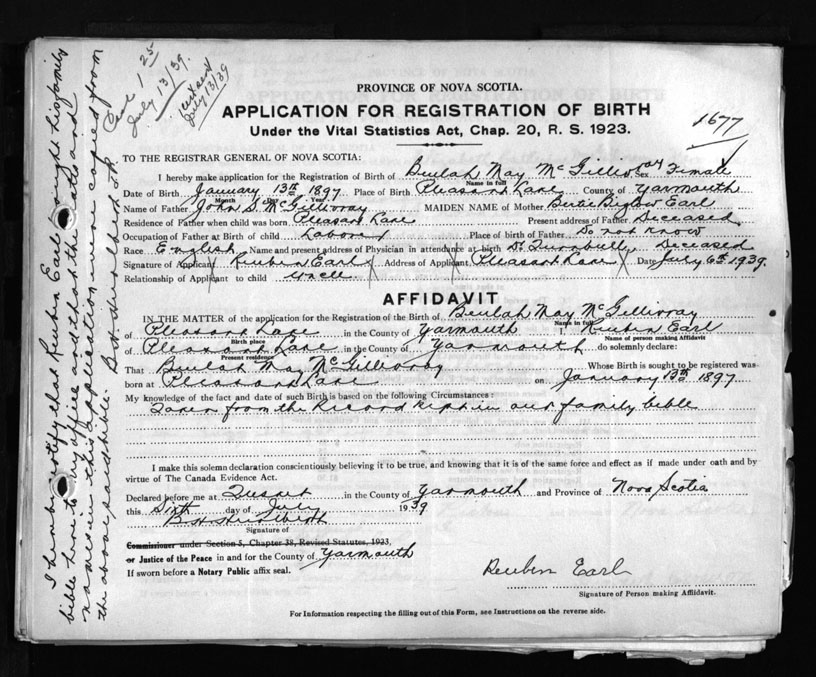 PROVINCE OF NOVA SCOTIA.
APPLICATION FOR REGISTRATION OF BIRTH
Under the Vital Statistics Act, Chap. 20, R. S. 1923.
1677
25
July 13/39.
July 13/39
TO THE REGISTRAR GENERAL OF NOVA SCOTIA:
I hereby make application for the Registration of Birth of Beulah May McGillivray Sex Female
Name in full
Date of Birth January 13th 1897 Place of Birth Pleasant Lake County of Yarmouth
Month Day Year
Name of Father John S. McGillivray MAIDEN NAME of Mother Bertie Biglow Earl
Residence of Father when child was born Pleasant Lake Present address of Father Deceased
Occupation of Father at Birth of child Laborer Place of birth of Father Do not Know
Race English Name and present address of Physician in attendance at birth Dr Turnbull, Deceased
Signature of Applicant Reuben Earl Address of Applicant Pleasant Lake Date July 6th 1939.
Relationship of Applicant to child uncle
AFFIDAVIT
IN THE MATTER of the application for the Registration of the Birth of Beulah May McGillivray
Name in full
of Pleasant Lake in the County of Yarmouth Reuben Earl
Birth place Name of person making Affidavit
of Pleasant Lake in the County of Yarmouth do solemnly declare:
Present residence
That Beulah May McGillivray Whose Birth is sought to be registered was
born at Pleasant Lake on January 13th 1897
My knowledge of the fact and date of such Birth is based on the following Circumstances:
Taken from the Record kept in our family bible
I make this solemn declaration conscientiously believing it to be true, and knowing that it is of the same force and effect as if made under oath and by
virtue of The Canada Evidence Act.
Declared before me at Tusket in the County of Yarmouth and Province of Nova Scotia
this Sixth day of July 1939
Signature of
Commissioner under Section 5, Chapter 38, Revised Statutes, 1923,
or Justice of the Peace in and for the County of Yarmouth
If sworn before a Notary Public affix seal.
Reuben Earl
Signature of Person making Affidavit.
For Information respecting the filling out of this Form, see Instructions on the reverse side.
I hereby certify that Reuben Earl brought his family
bible here to my office and that the dates and
names in this application were copied from
the above said bible.